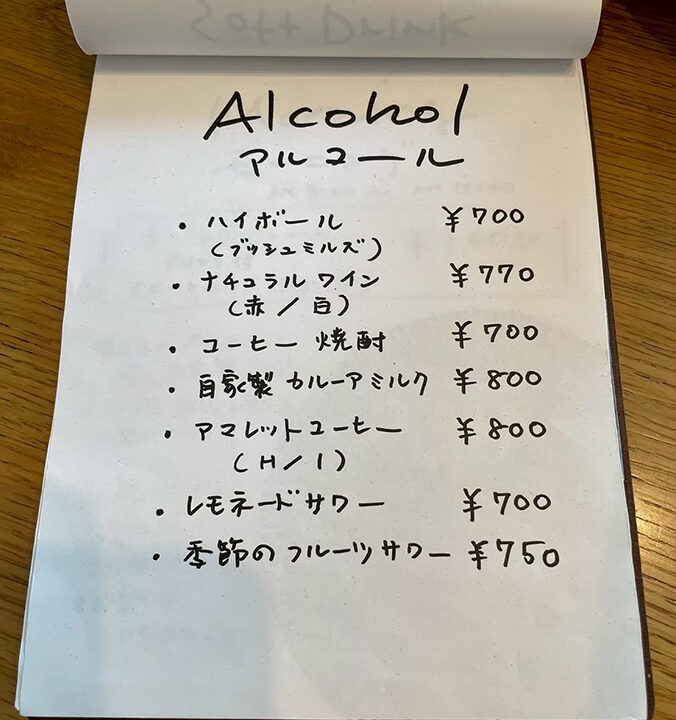 Soft Drink
Alcohol
アルコール
・ ハイボール ¥700
(ブッシュミルズ)
・ ナチュラル ワイン ¥770
(赤／白)
・ コーヒー 焼酎 ¥700
・ 自家製 カルーアミルク ¥800
・ アマレットコーヒー ¥800
(H／I)
・ レモネードサワー ¥700
・ 季節の フルーツサワー ¥750